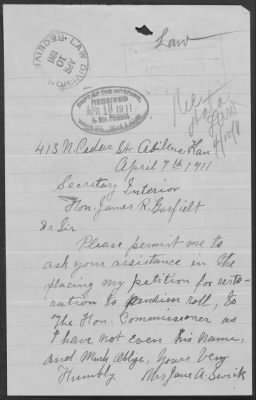 LAW DIVISION
APR 10 1911
RECEIVED
Law
DEPT OF THE INTERIOR
RECEIVED
APR 10 1911
413 N. Cedar St Abilene Kan
April 7th 1911
Secretary Interior
Hon. James R. Garfielt
Dr Sir
Please permit me to
ask your assistance in the
placing my petition for resto-
ration to pension roll, to
The Hon. Commissioner as
I have not even his name,
and Much Oblge, Yours Very
Humbly Mrs Jane A.